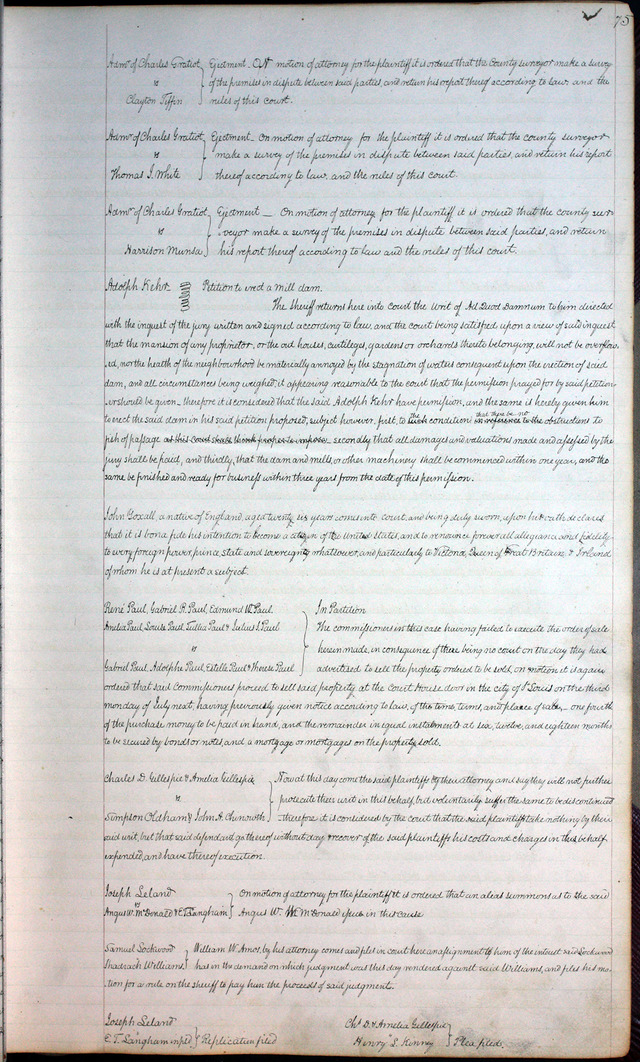 75
Admr. of Charles Gratiot } Ejectment. On motion of attorney for the plaintiff it is ordered that the County surveyor make a survey
vs of the premises in dispute between said parties, and return his report thereof according to law and the
Clayton Tiffin rules of this court.
Admr. of Charles Gratiot } Ejectment – On motion of attorney for the plaintiff it is ordered that the county surveyor
vs make a survey of the premises in dispute between said parties, and return his report
Thomas J. White thereof according to law, and the rules of this court.
Admr. of Charles Gratiot } Ejectment – On motion of attorney for the plaintiff it is ordered that the county sur-
vs veyor make a survey of the premises in dispute between said parties, and return
Harrison Munsa his report thereof according to law and the rules of this court.
Adolph Kehr Petition to erect a mill dam.
The Sheriff returns here into Court the Writ of Ad Quod Damnum to him directed
with the inquest of the jury written and signed according to law, and the court being satisfied upon a view of said inquest
that the mansion of any proprietor, or the out houses, curtileges, gardens or orchards thereto belonging, will not be overflow-
ed, nor the health of the neighbourhood be materially annoyed by the stagnation of waters consequent upon the erection of said
dam, and all circumstances being weighed, it appearing reasonable to the court that the permission prayed for by said petition-
er should be given – therefore it is considered that the said Adolph Kehr have permission, and the same is hereby given him
to erect the said dam in his said petition proposed, subject however, first, to such the condition in reference to the that there be no obstructions to
fish of passage as this Court shall think proper to impose secondly that all damages and valuations made and assessed by the
jury shall be paid, and thirdly, that the dam and mills, or other machinery shall be commenced within one year, and the
same be finished and ready for business within three years from the date of this permission.
John Goxall, a native of England, aged twenty six years comes into court, and being duly sworn, upon his oath declares
that it is bona fide his intention to become a citizen of the United States, and to renounce forever all allegiance and fidelity
to every foreign power, prince, state and sovereignty whatsoever, and particularly to Victoria, Queen of Great Britain & Ireland
of whom he is at present a subject.
René Paul, Gabriel R. Paul, Edmund W. Paul } In Partition
Amelia Paul, Louise Paul, Tullia Paul & Julius J. Paul The commissioners in this case having failed to execute the order of sale
vs herein made, in consequence of there being no court on the day they had
Gabriel Paul, Adolphe Paul, Estelle Paul & Therese Paul advertised to sell the property ordered to be sold, on motion it is again
ordered that said commissioners proceed to sell said property at the Court House door in the city of St Louis on the third
monday of July next, having previously given notice according to law, of the time, terms, and place of sales, – one fourth
of the purchase money to be paid in hand, and the remainder in equal instalments at six, twelve, and eighteen months
to be secured by bonds or notes, and a mortgage or mortgages on the property sold.
Charles D. Gillespie & Amelia Gillespie } Now at this day come the said plaintiffs by their attorney and say they will not further
vs prosecute their writ in this behalf, but voluntarily suffer the same to be discontinued
Simpson Oldham & John H. Chenowth – therefore it is considered by the court that the said plaintiffs take nothing by their
said writ, but that said defendants go thereof without day & recover of the said plaintiffs his costs and charges in this behalf
expended, and have thereof execution.
Joseph Leland } On motion of attorney for the plaintiff it is ordered that an alias summons as to the said
vs
Angus W. McDonald & E. T. Langham } Angus W. McDonald issue in this cause
Samuel Lockwood } William W. Amos, by his attorney comes and files in court here an assignment to him of the interest said Lockwood
Shadrach Williams. has in the demand on which judgment was this day rendered against said Williams, and files his mo-
tion for a rule on the sheriff to pay him the proceeds of said judgment.
Joseph Leland
vs
E. T. Langham impld } Replication filed
Chs. D. & Amelia Gillespie
vs
Henry L. Kinney } Plea filed.